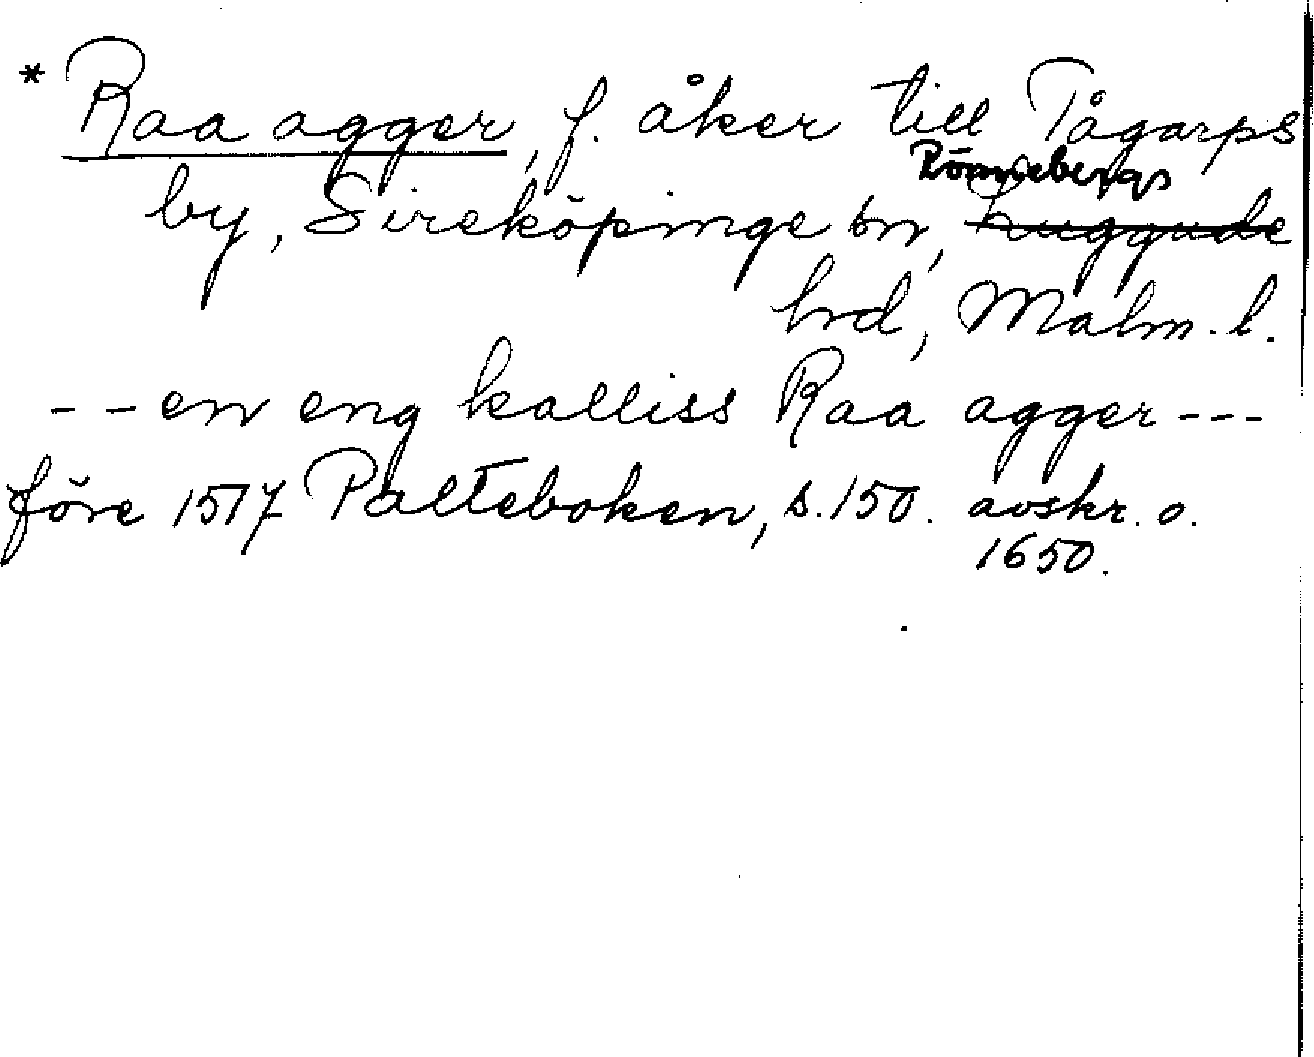 * Raa agger, f. åker till Tågarps
by, Sireköpinge sn, Rönnebergs
hrd, Malm. l.
- - en eng kalliss Raa agger - - -
före 1517 Palteboken, s. 150. avskr. o.
1650.